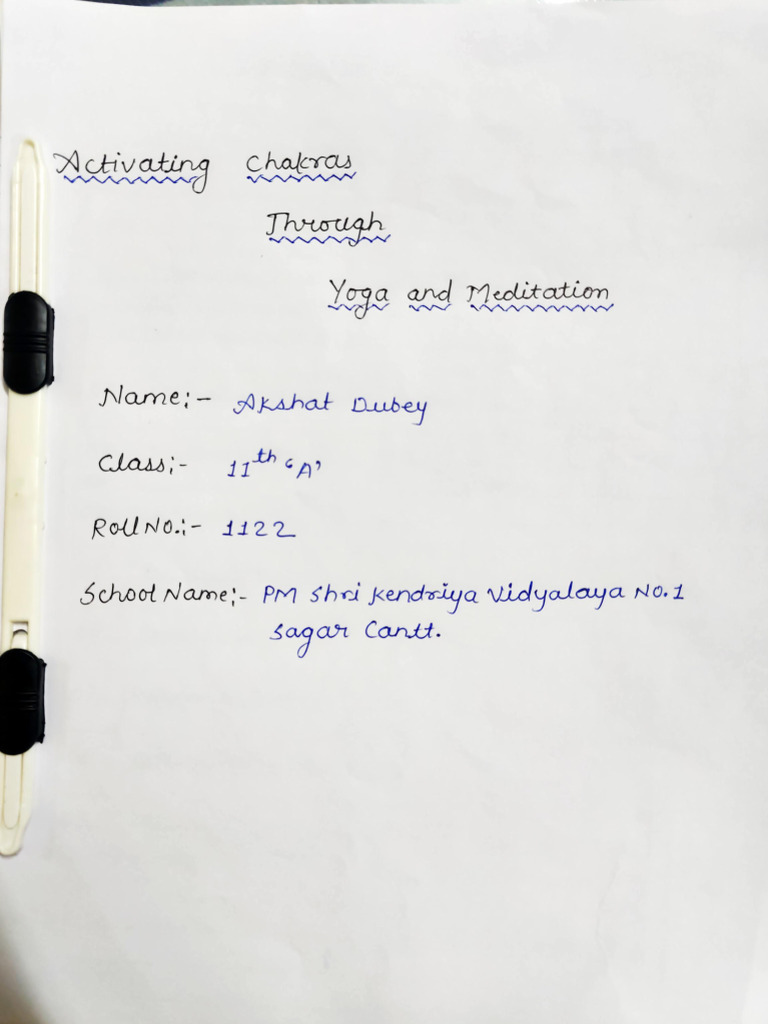 Activating Chakras
Through
Yoga and Meditation
Name:- Akshat Dubey
Class:- 11th 'A'
Roll No.:- 1122
School Name:- PM Shri Kendriya Vidyalaya No. 1
Sagar Cantt.